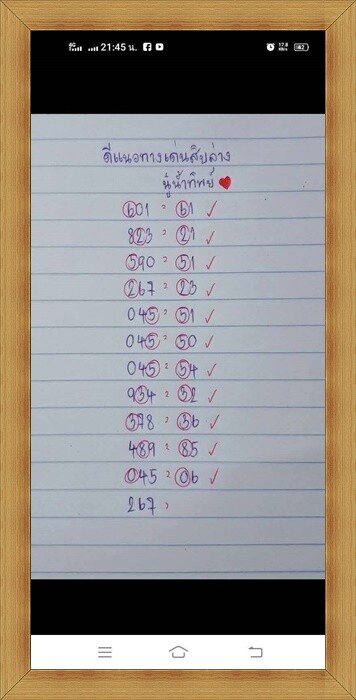 4G 21:45 น. 17.8 KB/s 62
ดีแนวทางเด่นสิบล่าง
นู๋น้ำทิพย์
601 = 61 ✓
823 = 21 ✓
590 = 51 ✓
267 = 23 ✓
045 = 51 ✓
045 = 50 ✓
045 = 54 ✓
934 = 32 ✓
378 = 36 ✓
489 = 85 ✓
045 = 06 ✓
267 =